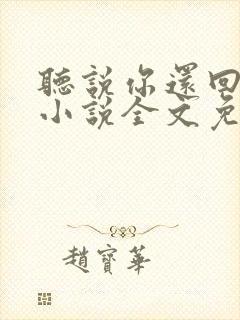 聽說你還回
小說全文免
趙寶華